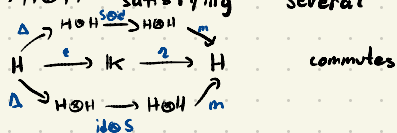 satisfying several
Δ H⊗H S⊗id H⊗H m
H ε 𝕜 η H commutes
Δ H⊗H H⊗H m
id⊗S